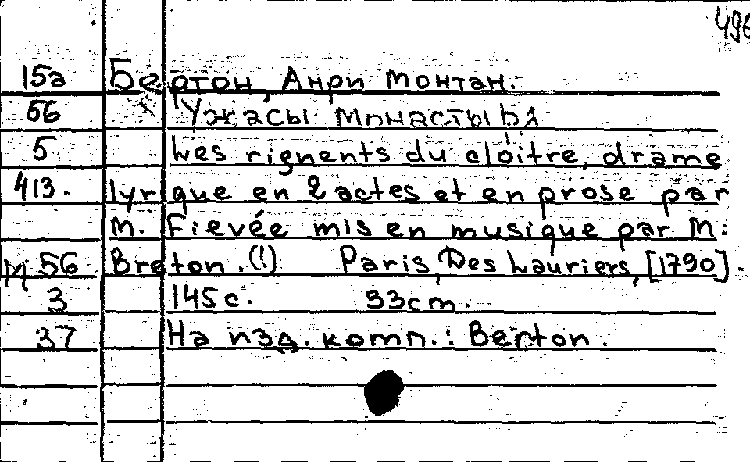 496
15а Бертон, Анри Монтан.
56 Ужасы монастыря
5 Les rignents du cloître, drame
413. lyrique en 2 actes et en prose par
M. Fievée mis en musique par M.
М 56 Breton.(!) Paris, Des Lauriers, [1790].
3 145с. 33cm.
37 На изд. комп.: Berton.